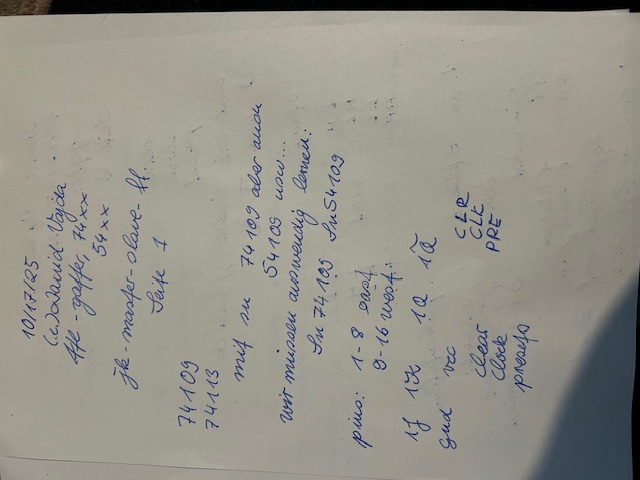 10/17/25
(c) David Vajda
ttl-gatter, 74xx
54xx
jk-master-slave-ff
Seite 1
74109
74113
mit sn 74109 aber auch
54109 usw...
wir müssen auswendig lernen:
Sn 74109 Sn54109
pins: 1-8 east
9-16 west:
1J 1K̅ 1Q 1Q̅
gnd vcc
clear CLR
Clock CLK
preset PRE